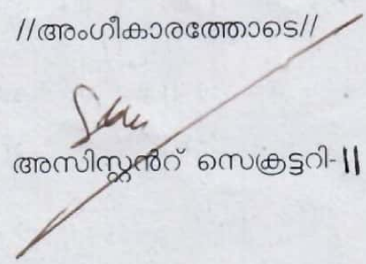 //അംഗീകാരത്തോടെ//
അസിസ്റ്റൻറ് സെക്രട്ടറി-II